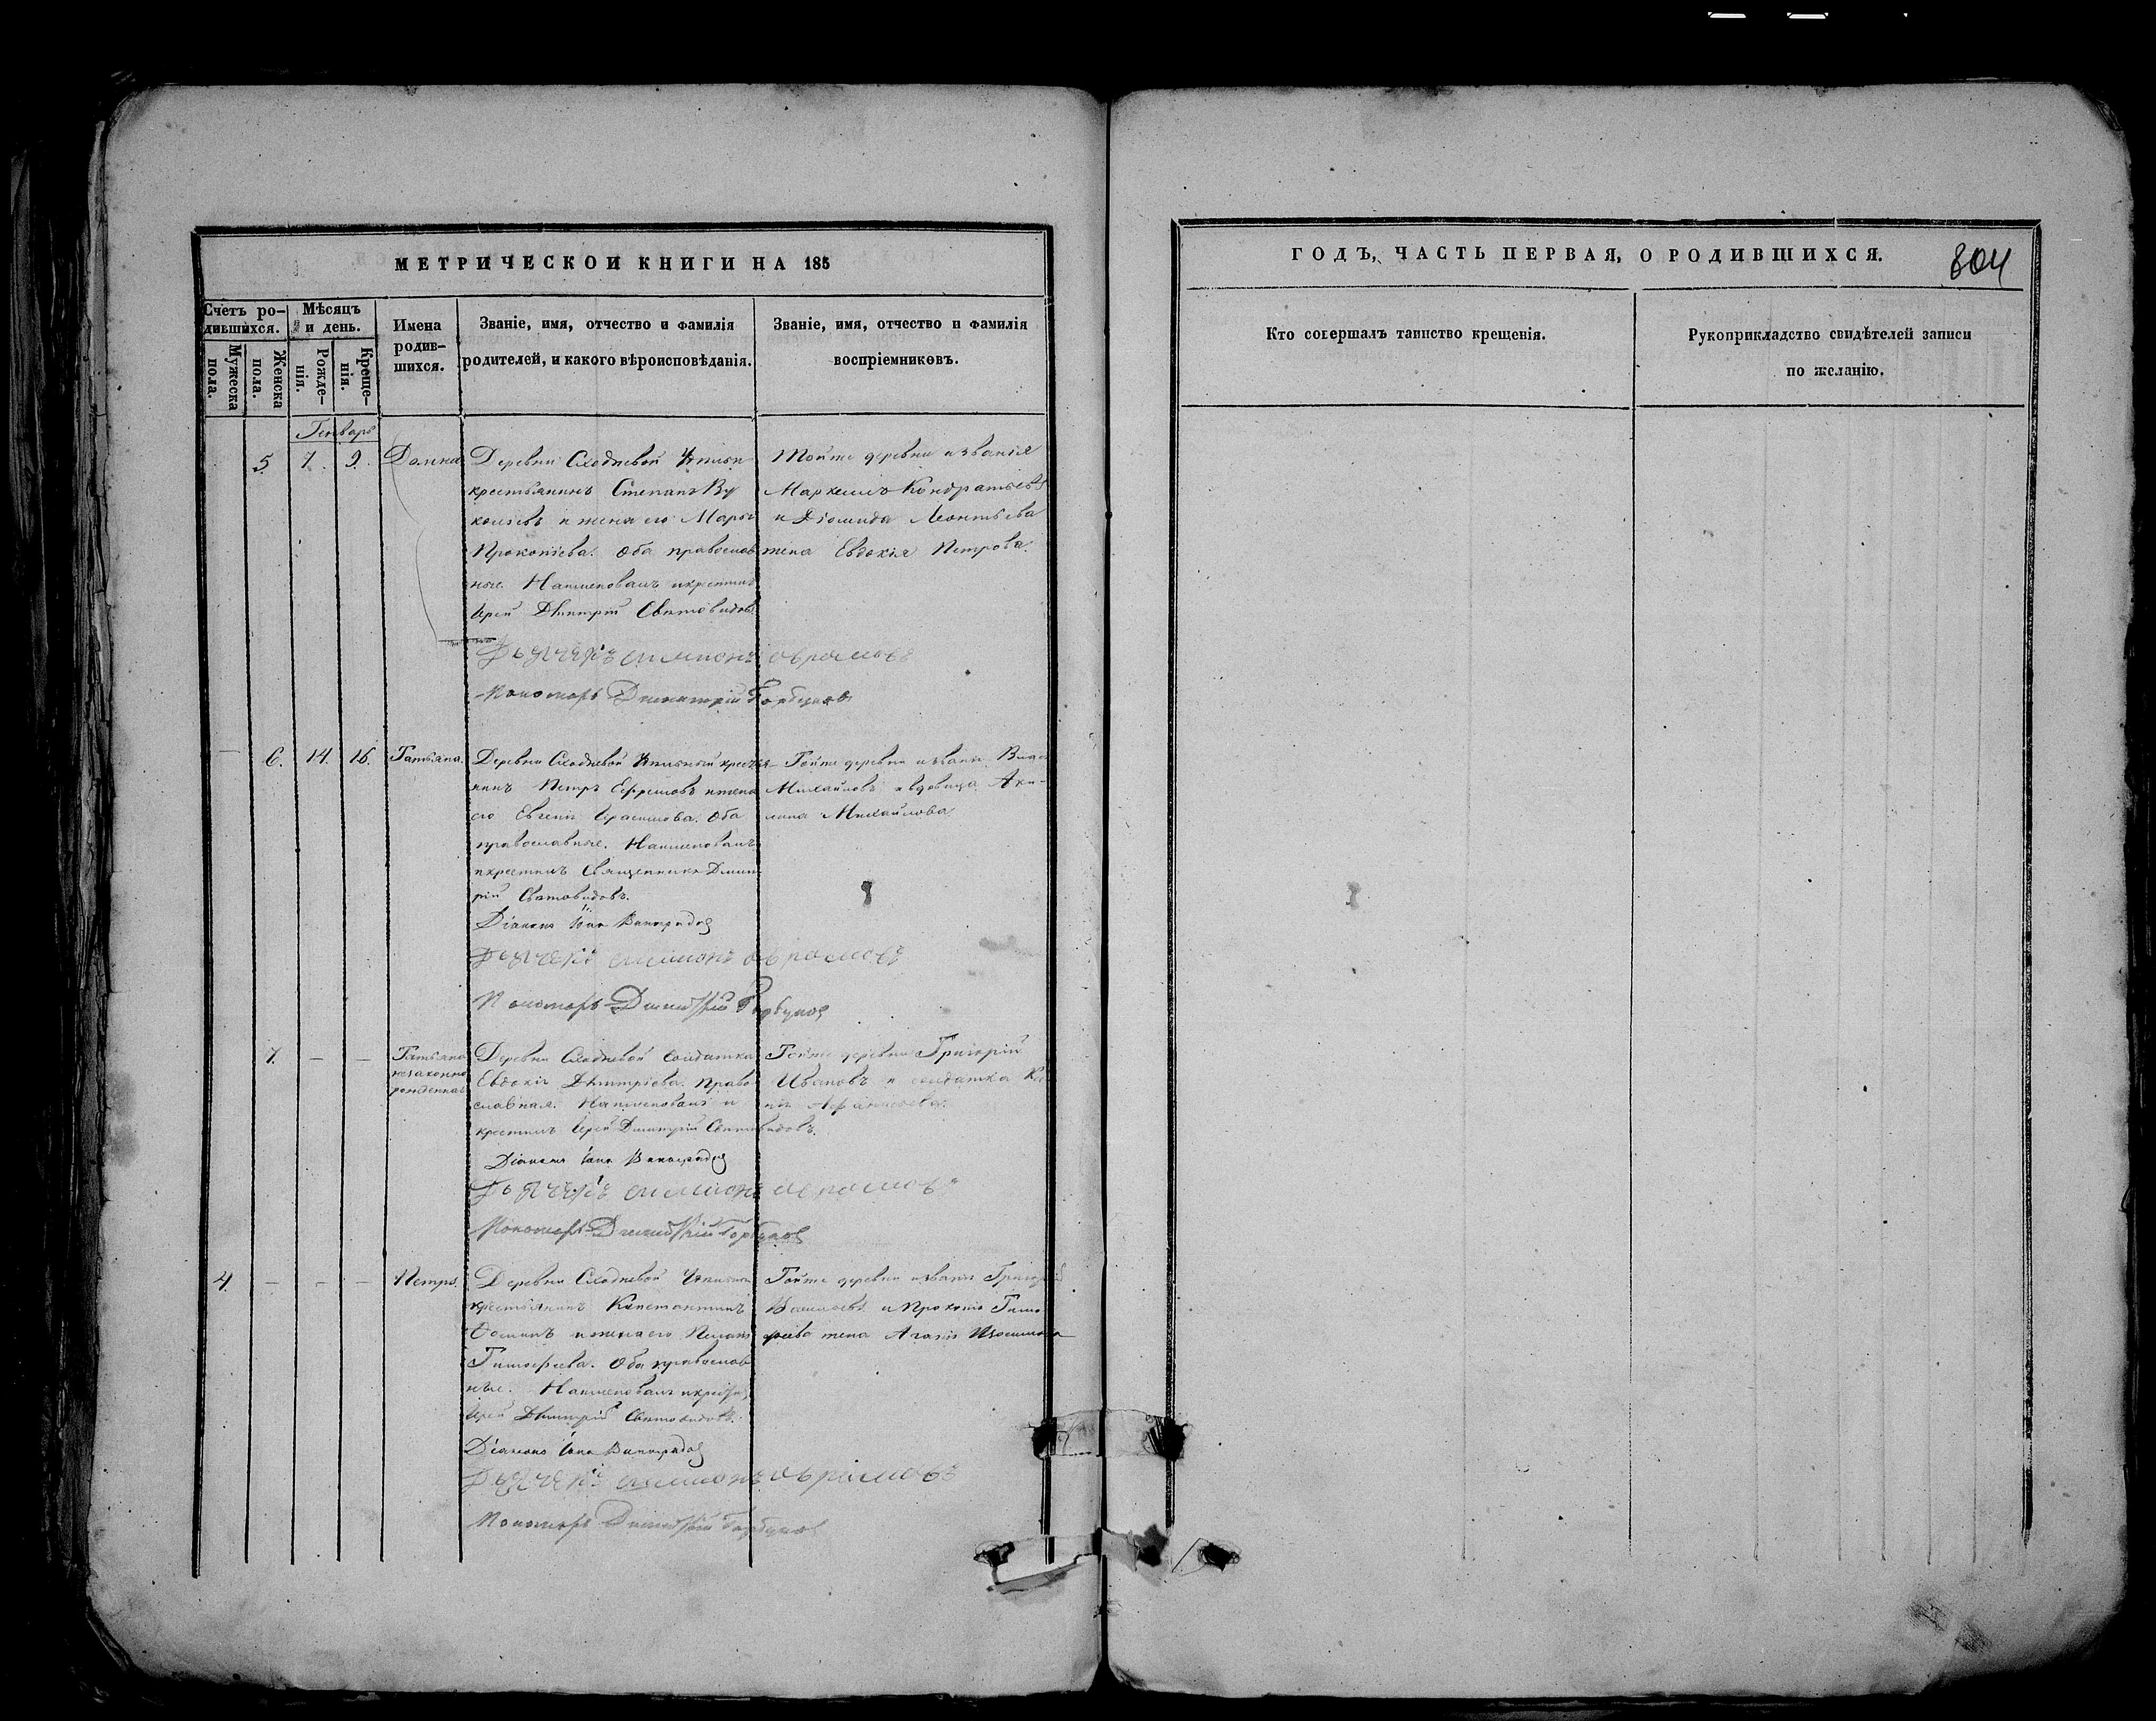 МЕТРИЧЕСКОЙ КНИГИ НА 185
Счетъ ро-
дившихся.
Мѣсяцъ
и день.
Мужеска
пола.
Женска
пола.
Рожде-
нія.
Креще-
нія.
Имена
родив-
шихся.
Званіе, имя, отчество и фамилія
родителей, и какого вѣроисповѣданія.
Званіе, имя, отчество и фамилія
воспріемниковъ.
Генварь
5 7. 9. Домна
Деревни Сходневой
крестьянинъ Степанъ Ву
коловъ и жена его Марья
Прокопіева. Оба православ
ные. Наименовалъ и крестилъ
Іерей Дмитрій Святовидовъ
Дьячекъ симионъ аврамовъ
Пономарь Димитрій Горбуновъ
Тойже деревни и званія
Маркеллъ Кондратьевъ
и Діомида Леонтьева
жена Евдокія Петрова.
6. 14. 16. Татьяна.
Деревни Сходневой крестья-
нинъ Петръ Ефремовъ и жена
его Евгенія Герасимова. Оба
православные. Наименовалъ
и крестилъ Священникъ Дмит
рій Святовидовъ.
Діаконъ Іоаннъ Виноградов
Дьячекъ симионъ аврамовъ
Пономарь Димитрій Горбунов
Тойже деревни и званія
Михайловъ и вдовица Аку-
лина Михайлова
7. — — Татьяна
незаконно
рожденная
Деревни Сходневой солдатка
Евдокія Дмитріева. Право
славная. Наименовалъ и
крестилъ Іерей Димитрій Святовидовъ.
Діаконъ Іоаннъ Виноградов
Дьячекъ симионъ аврамовъ
Пономарь Димитрій Горбунов
Тойже деревни Григорій
Ивановъ и солдатка
4. — — — Петръ.
Деревни Сходневой
крестьянинъ Константинъ
Осиповъ и жена его Пелагія
Тимофеева. Оба православ
ные. Наименовалъ и крестил
Іерей Дмитрій Святовидовъ.
Діаконъ Іоаннъ Виноградов
Дьячекъ симионъ аврамовъ
Пономарь Димитрій Горбунов
Тойже деревни и званія Григорій
Васильевъ и Прокопія Тимо
феева жена
ГОДЪ, ЧАСТЬ ПЕРВАЯ, О РОДИВШИХСЯ.
804
Кто совершалъ таинство крещенія.
Рукоприкладство свидѣтелей записи
по желанію.